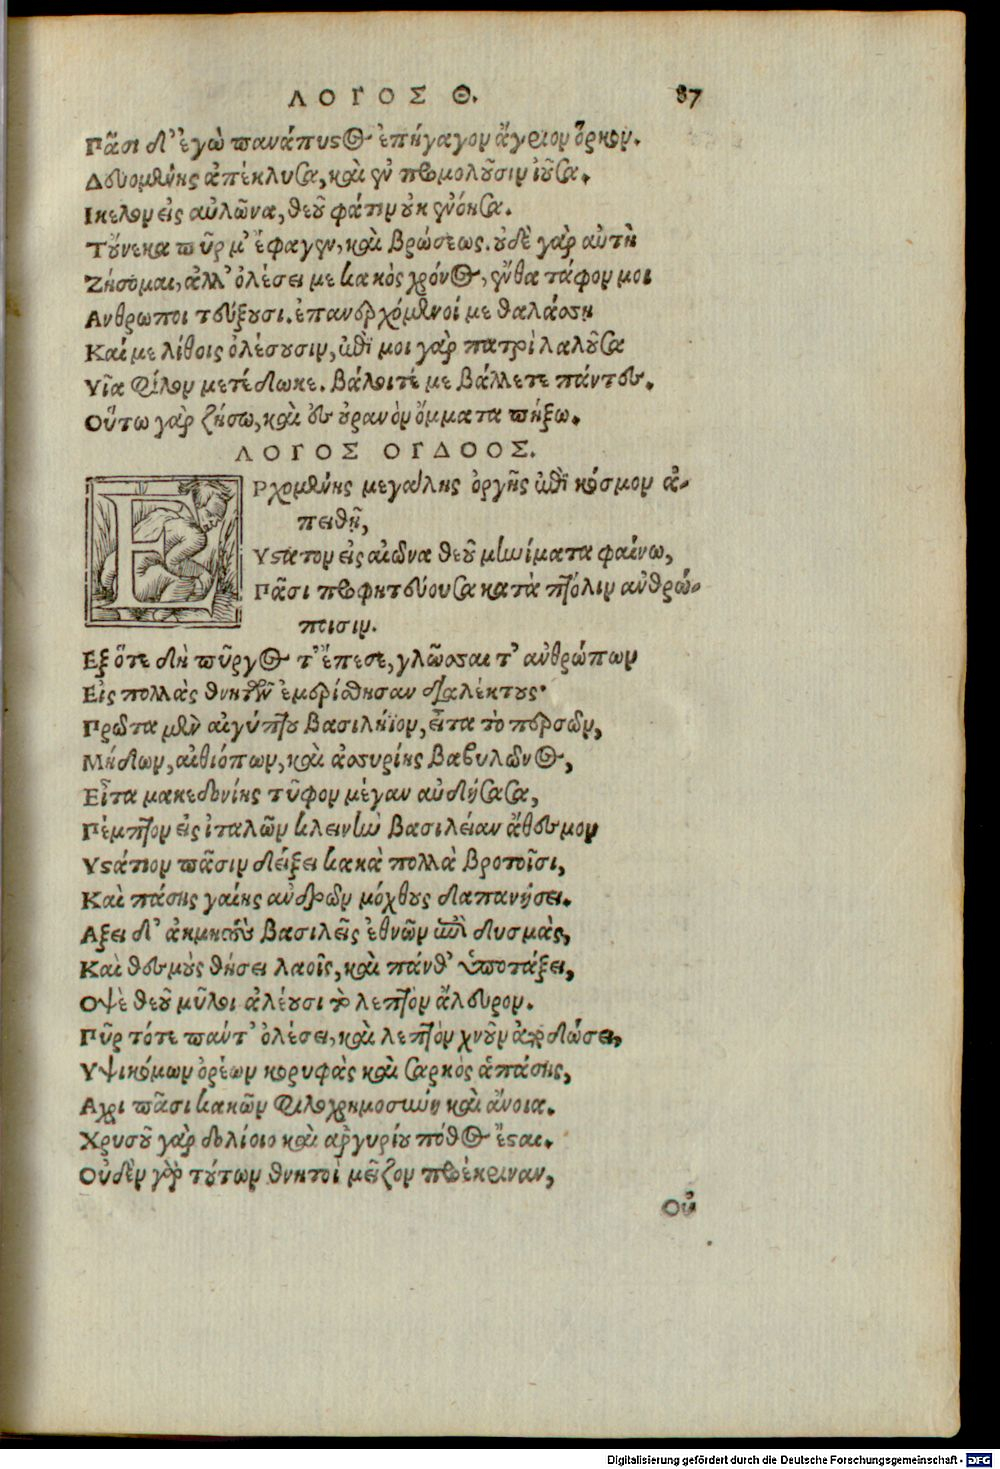 ΛΟΓΟΣ Θ. 87
Πᾶσι δ' ἐγὼ πανάπυστος ἐπήγαγον ἄγριον ὅρκον.
Δευομένης ἀπέκλυσα, καὶ ἐν προμολοῦσιν ἰοῦσα.
Ικελον εἰς αὐλῶνα, θεοῦ φάτιν οὐκ ἐνόησα.
Τοὔνεκα πῦρ μ' ἔφαγεν, καὶ βρώσεως. οὐδὲ γὰρ αὐτὴ
Ζήσομαι, ἀλλ' ὀλέσει με κακὸς χρόνος, ἔνθα τάφον μοι
Ανθρωποι τεύξουσι. ἐπανερχόμενοί με θαλάσσῃ
Καί με λίθοις ὀλέσουσιν, ἐπὶ μοι γὰρ πατρὶ λαλοῦσα
Υἷα φίλον μετέδωκε. βάλοιτέ με βάλλετε πάντες.
Οὕτω γὰρ ζήσω, καὶ ἐς οὐρανὸν ὄμματα πήξω.
ΛΟΓΟΣ ΟΓΔΟΟΣ.
ΕΡχομένης μεγάλης ὀργῆς ἐπὶ κόσμον ἀ-
πειθῆ,
Υστατον εἰς αἰῶνα θεοῦ μηνίματα φαίνω,
Πᾶσι προφητεύουσα κατὰ πτόλιν ἀνθρώ-
ποισιν.
Εξ ὅτε δὴ πῦργος τ' ἔπεσε, γλῶσσαι τ' ἀνθρώπων
Εἰς πολλὰς θνητῶν ἐμερίσθησαν διαλέκτους·
Πρῶτα μὲν αἰγύπτου βασιλήϊον, εἶτα τὸ περσῶν,
Μήδων, αἰθιόπων, καὶ ἀσσυρίης βαβυλῶνος,
Εἶτα μακεδονίης τῦφον μέγαν αὐδήσασα,
Πέμπτον εἰς ἰταλῶν κλεινὴν βασιλείαν ἄθεσμον
Υστάτιον πᾶσιν δείξει κακὰ πολλὰ βροτοῖσι,
Καὶ πάσης γαίης ἀνδρῶν μόχθους δαπανήσει.
Αξει δ' ἀκμητοὺς βασιλεῖς ἐθνῶν ἐπὶ δυσμὰς,
Καὶ θεσμοὺς θήσει λαοῖς, καὶ πάνθ' ὑποτάξει,
Οψὲ θεοῦ μῦλοι ἀλέουσι τὸ λεπτὸν ἄλευρον.
Πῦρ τότε πάντ' ὀλέσει, καὶ λεπτὸν χνοῦν ἀποδώσει,
Υψικόμων ὀρέων κορυφὰς καὶ σαρκὸς ἁπάσης,
Αχρι πᾶσι κακῶν φιλοχρημοσύνη καὶ ἄνοια.
Χρυσοῦ γὰρ δολίοιο καὶ ἀργυρίου πόθος ἔσται.
Οὐδὲν γὰρ τούτων θνητοὶ μεῖζον προέκριναν,
Οὐ
Digitalisierung gefördert durch die Deutsche Forschungsgemeinschaft - DFG